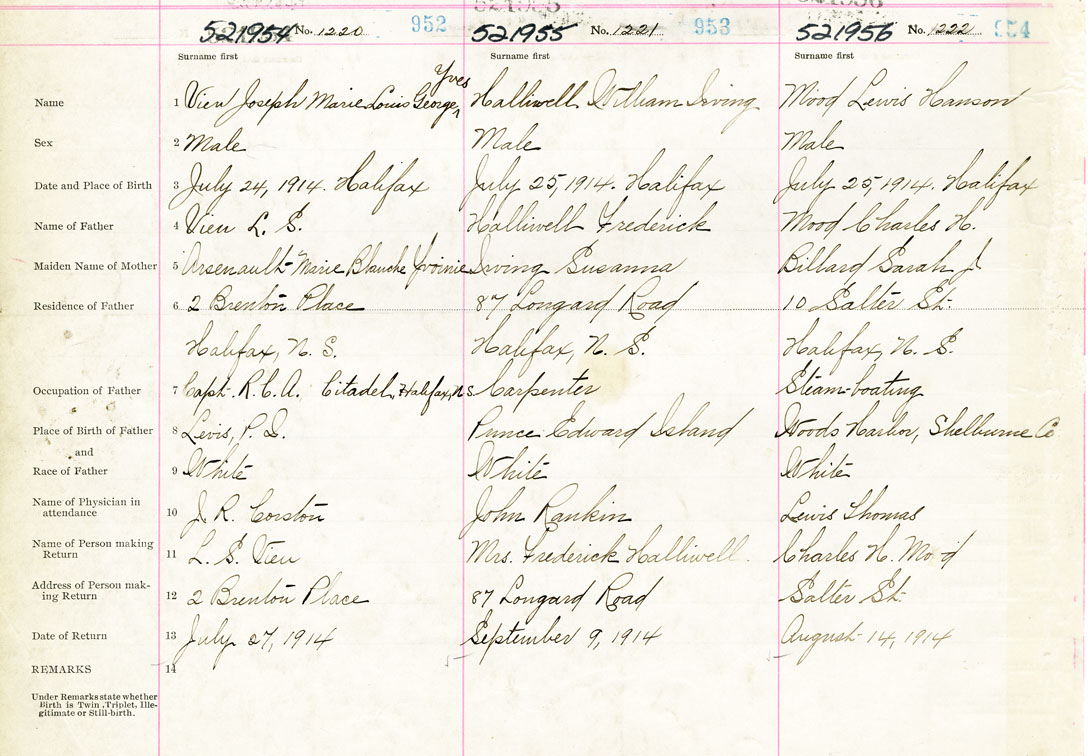 521954 No. 1220 952 521955 No. 1221 953 521956 No. 1222 954
Surname first Surname first Surname first
Yves
Name 1 Vien Joseph Marie Louis George ^ Halliwell William Irving Mood Lewis Hanson
Sex 2 Male Male Male
Date and Place of Birth 3 July 24, 1914. Halifax July 25, 1914. Halifax July 25, 1914. Halifax
Name of Father 4 Vien L. S. Halliwell Frederick Mood Charles H.
Maiden Name of Mother 5 Arsenault-Marie Blanche Yvoinie Irving Susanna Billard Sarah J
Residence of Father 6 2 Brenton Place 87 Longard Road 10 Salter St.
Halifax, N. S. Halifax, N. S. Halifax, N. S.
Occupation of Father 7 Capt. R.C.A. Citadel, Halifax, N.S. Carpenter Steam-boating
Place of Birth of Father 8 Levis, P. Q. Prince Edward Island Woods Harbor, Shelburne Co
and
Race of Father 9 White White White
Name of Physician in
attendance 10 J. R. Corston John Rankin Lewis Thomas
Name of Person making
Return 11 L. S. Vien Mrs. Frederick Halliwell. Charles H. Mood
Address of Person mak-
ing Return 12 2 Brenton Place 87 Longard Road Salter St.
Date of Return 13 July 27, 1914 September 9, 1914 August 14, 1914
REMARKS 14
Under Remarks state whether
Birth is Twin, Triplet, Ille-
gitimate or Still-birth.